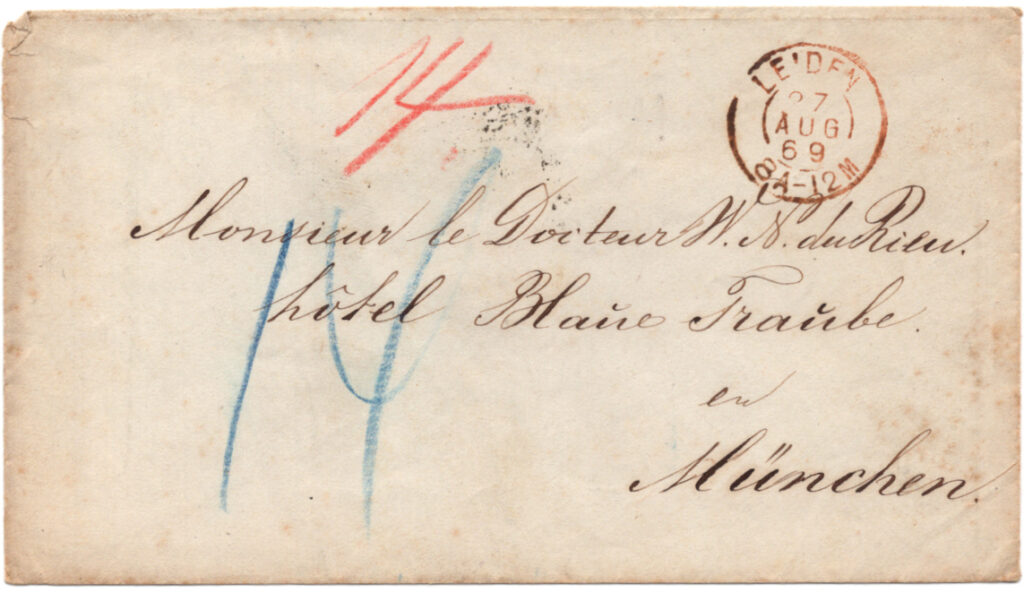 14
LEIDEN
27
AUG
69
8A-12M
Monsieur le Docteur W. N. du Rieu.
hôtel Blaue Traube.
en
München.
14